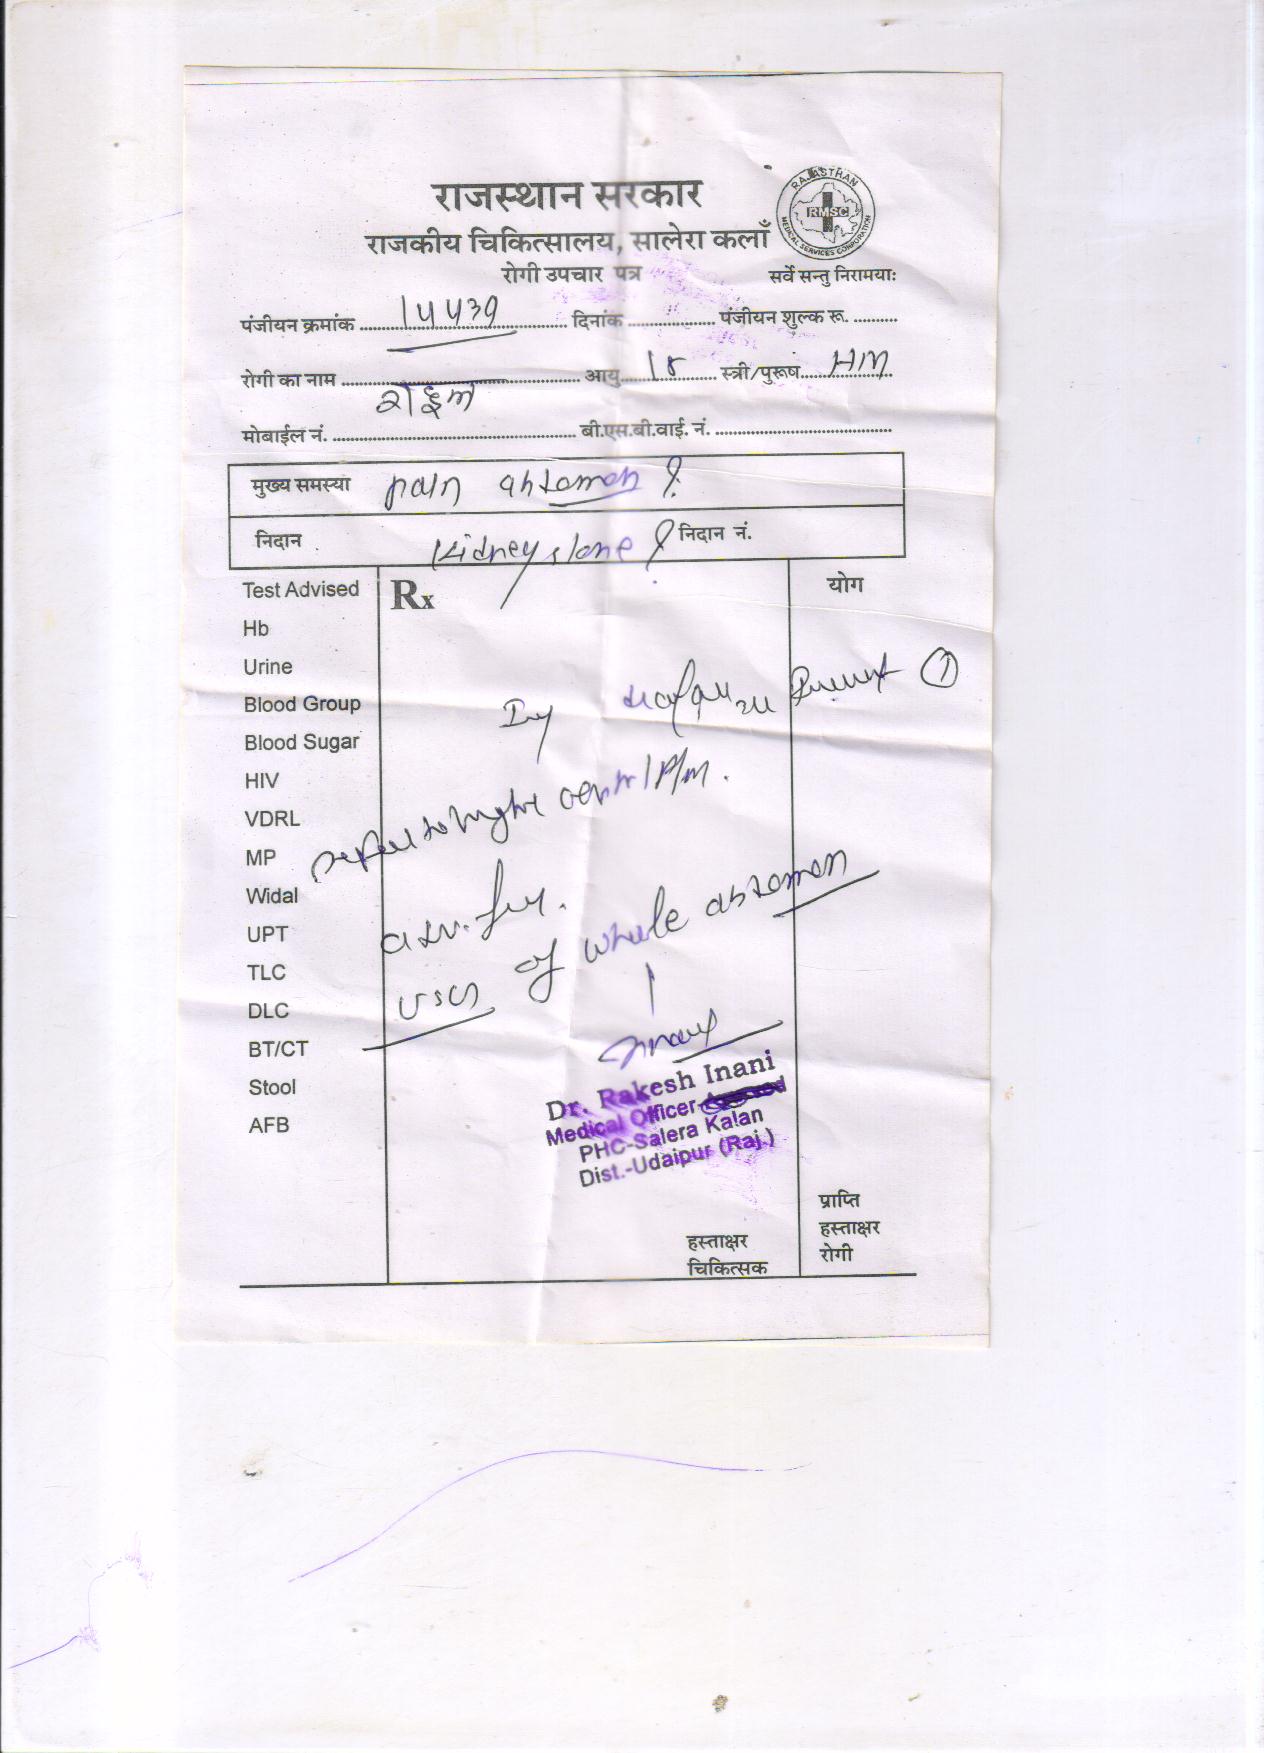 राजस्थान सरकार
राजकीय चिकित्सालय, सालेरा कलाँ
रोगी उपचार पत्र
RAJASTHAN
RMSC
MEDICAL SERVICES CORPORATION
सर्वे सन्तु निरामयाः
पंजीयन क्रमांक दिनांक पंजीयन शुल्क रू.
रोगी का नाम आयु 18 स्त्री/पुरूष
मोबाईल नं. बी.एस.बी.वाई. नं.
मुख्य समस्या pain abdomen ?
निदान Kidney stone ? निदान नं.
Test Advised Rx योग
Hb
Urine
Blood Group
Blood Sugar
HIV
VDRL
MP
Widal
UPT
TLC
DLC
BT/CT
Stool
AFB
1
refer to higher
adv. for
USG of whole abdomen
Dr. Rakesh Inani
Medical Officer
PHC-Salera Kalan
Dist.-Udaipur (Raj.)
हस्ताक्षर
चिकित्सक
प्राप्ति
हस्ताक्षर
रोगी